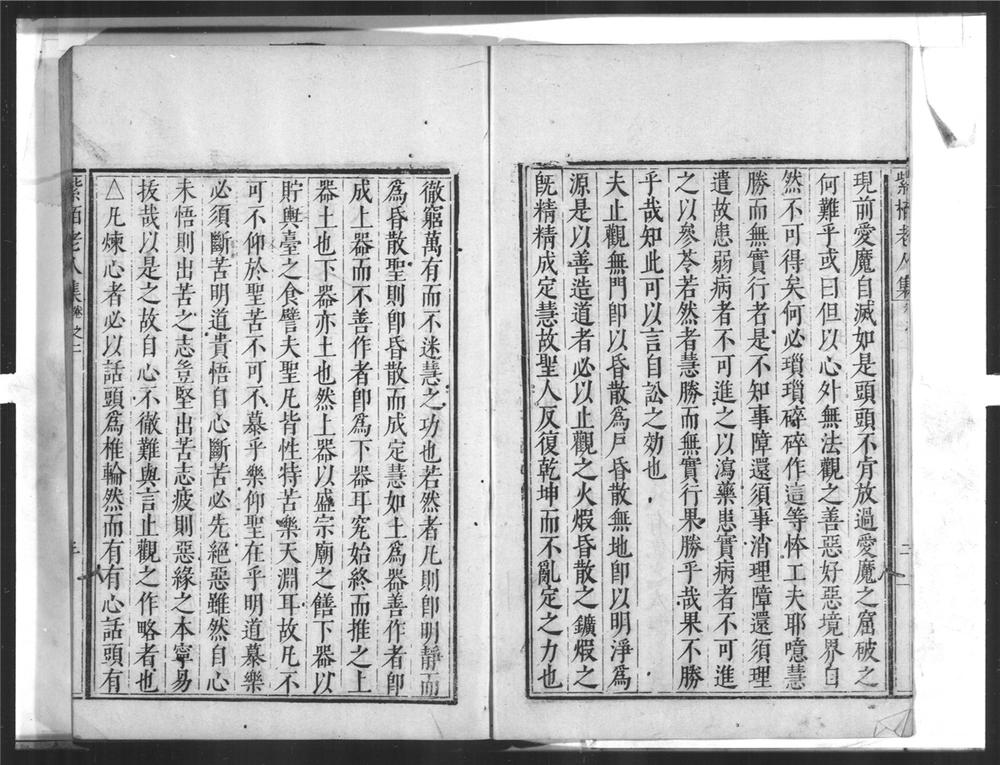 現前愛魔自滅如是頭頭不肯放過愛魔之窟破之
何難乎或曰但以心外無法觀之善惡好惡境界自
然不可得矣何必瑣瑣碎碎作這等怑工夫耶噫慧
勝而無實行者是不知事障還須事消理障還須理
遣故患弱病者不可進之以瀉藥患實病者不可進
之以參苓若然者慧勝而無實行果勝乎哉果不勝
乎哉知此可以言自訟之効也
夫止觀無門卽以昏散爲戶昏散無地卽以明淨爲
源是以善造道者必以止觀之火煆昏散之鑛煆之
旣精精成定慧故聖人反復乾坤而不亂定之力也
紫栢老人集
二
徹窮萬有而不迷慧之功也若然者凡則卽明靜而
爲昏散聖則卽昏散而成定慧如土爲器善作者卽
成上器而不善作者卽爲下器耳究始終而推之上
器土也下器亦土也然上器以盛宗廟之饍下器以
貯輿臺之食譬夫聖凡皆性特苦樂天淵耳故凡不
可不仰於聖苦不可不慕乎樂仰聖在乎明道慕樂
必須斷苦明道貴悟自心斷苦必先絕惡雖然自心
未悟則出苦之志豈堅出苦志疲則惡緣之本寧易
拔哉以是之故自心不徹難與言止觀之作略者也
△凡煉心者必以話頭爲椎輪然而有有心話頭有
紫栢老人集卷之二